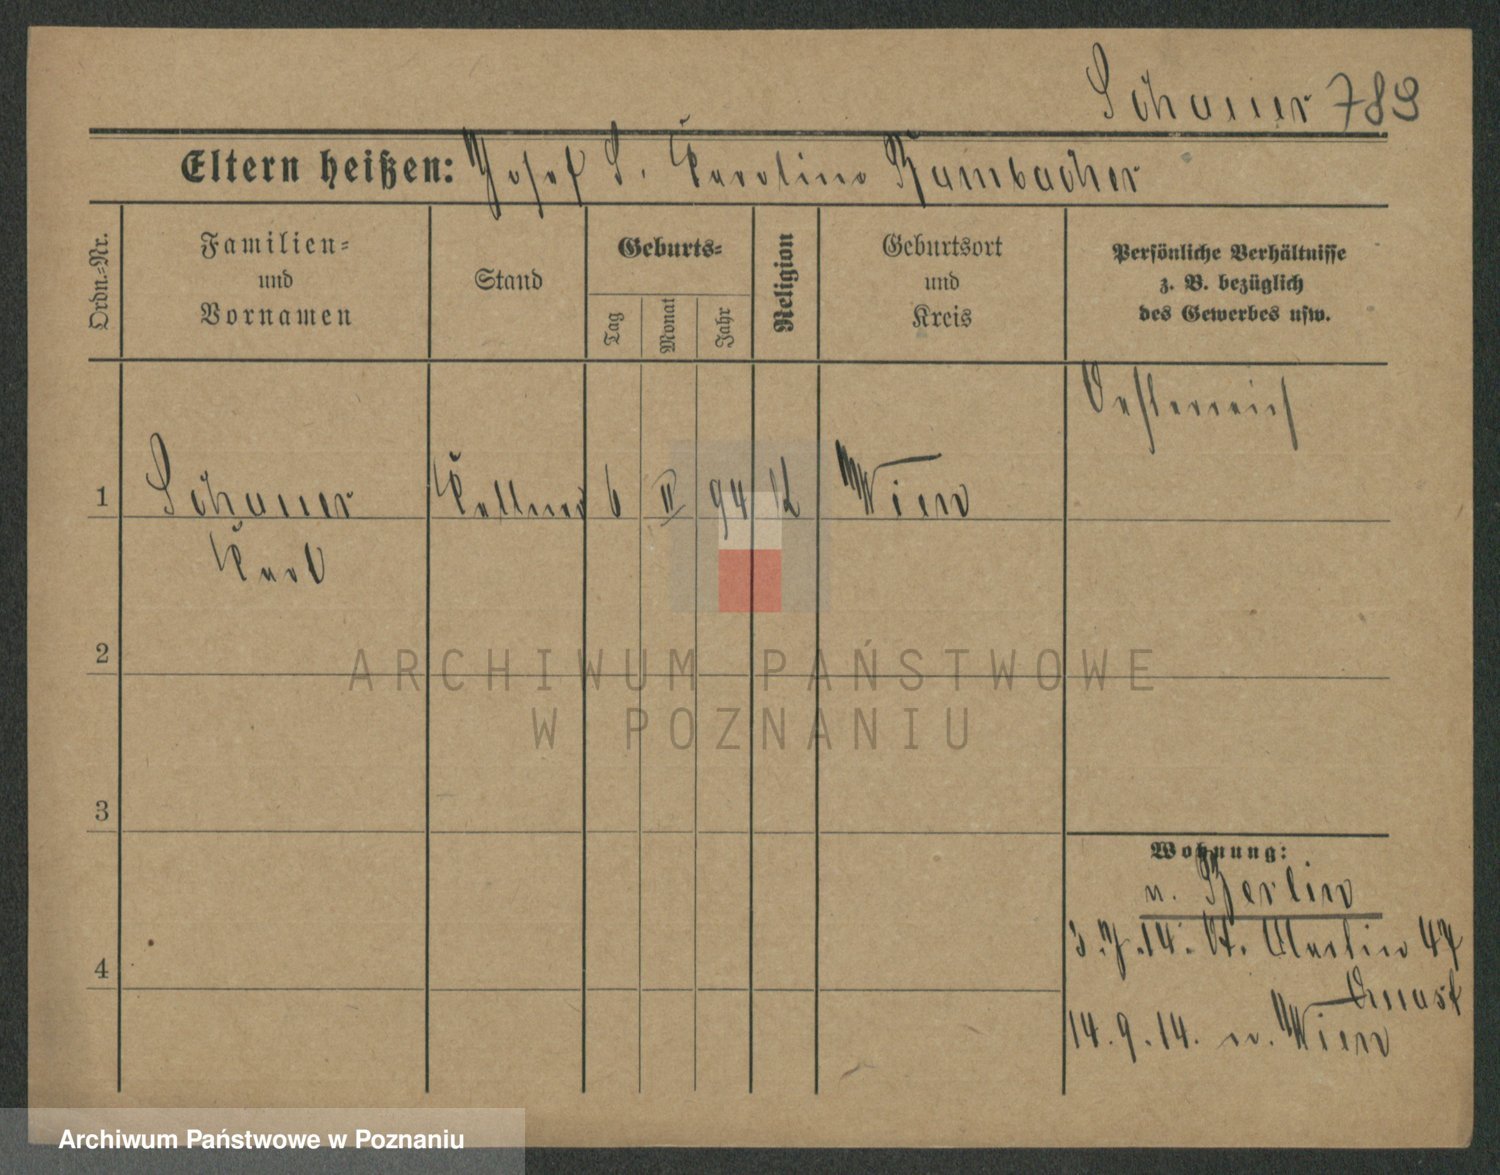 Schauer 789
Eltern heißen: Josef S. Karolina Rambacher
Ordn.-Nr.
Familien- und Vornamen
Stand
Geburts-
Tag
Monat
Jahr
Religion
Geburtsort und Kreis
Persönliche Verhältnisse
z. B. bezüglich
des Gewerbes usw.
Oesterreich
1 Schauer Kellner 6 II 94 k Wien
Karl
2
3
4
Wohnung:
n. Berlin
3.7.14. St. Martin 47
14.9.14. n. Wien
ARCHIWUM PAŃSTWOWE
W POZNANIU
Archiwum Państwowe w Poznaniu